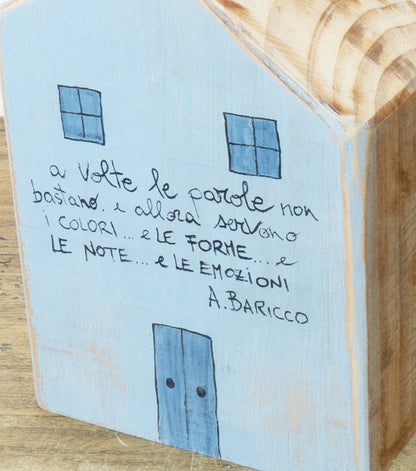 a volte le parole non
bastano. e allora servono
i COLORI... e LE FORME... e
LE NOTE... e LE EMOZIONI
A. BARICCO